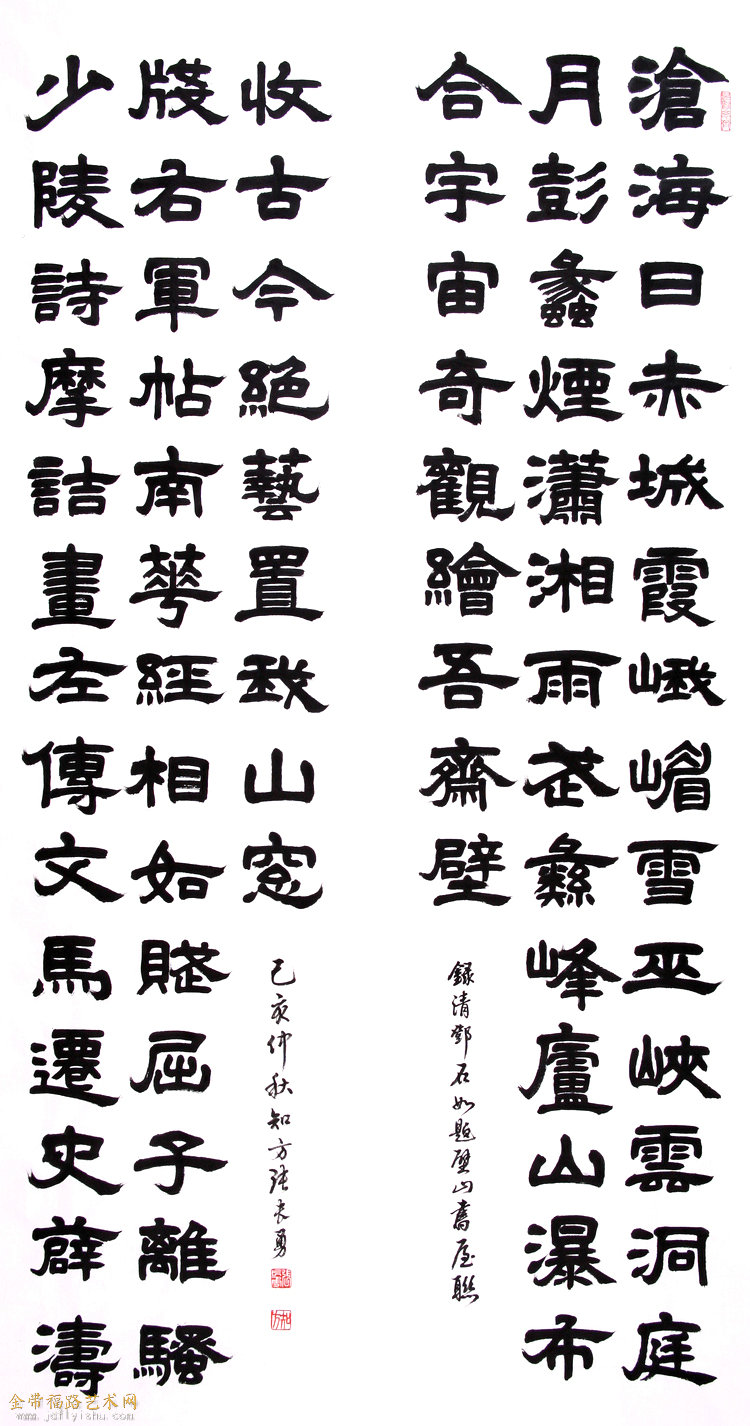 滄海日赤城霞峨嵋雪巫峽雲洞庭
月彭蠡煙瀟湘雨武彝峰廬山瀑布
合宇宙奇觀繪吾齋壁
錄清鄧石如題壁山書屋聯
少陵詩摩詰畫左傳文馬遷史薛濤
牋右軍帖南華經相如賦屈子離騷
收古今絕藝置我山窓
己亥仲秋知方張长勇
知方
金带福路艺术网
www.jdflyishu.com